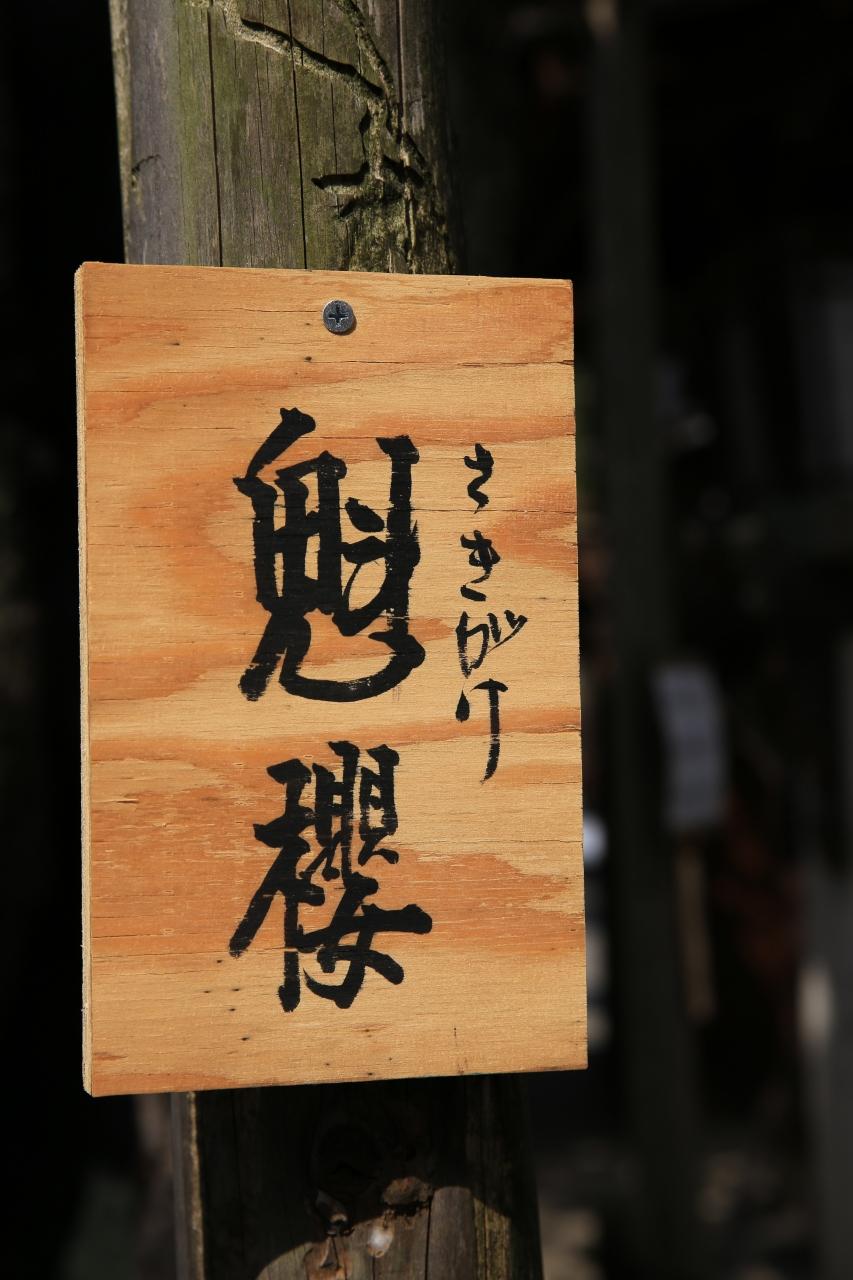 さきがけ
魁櫻